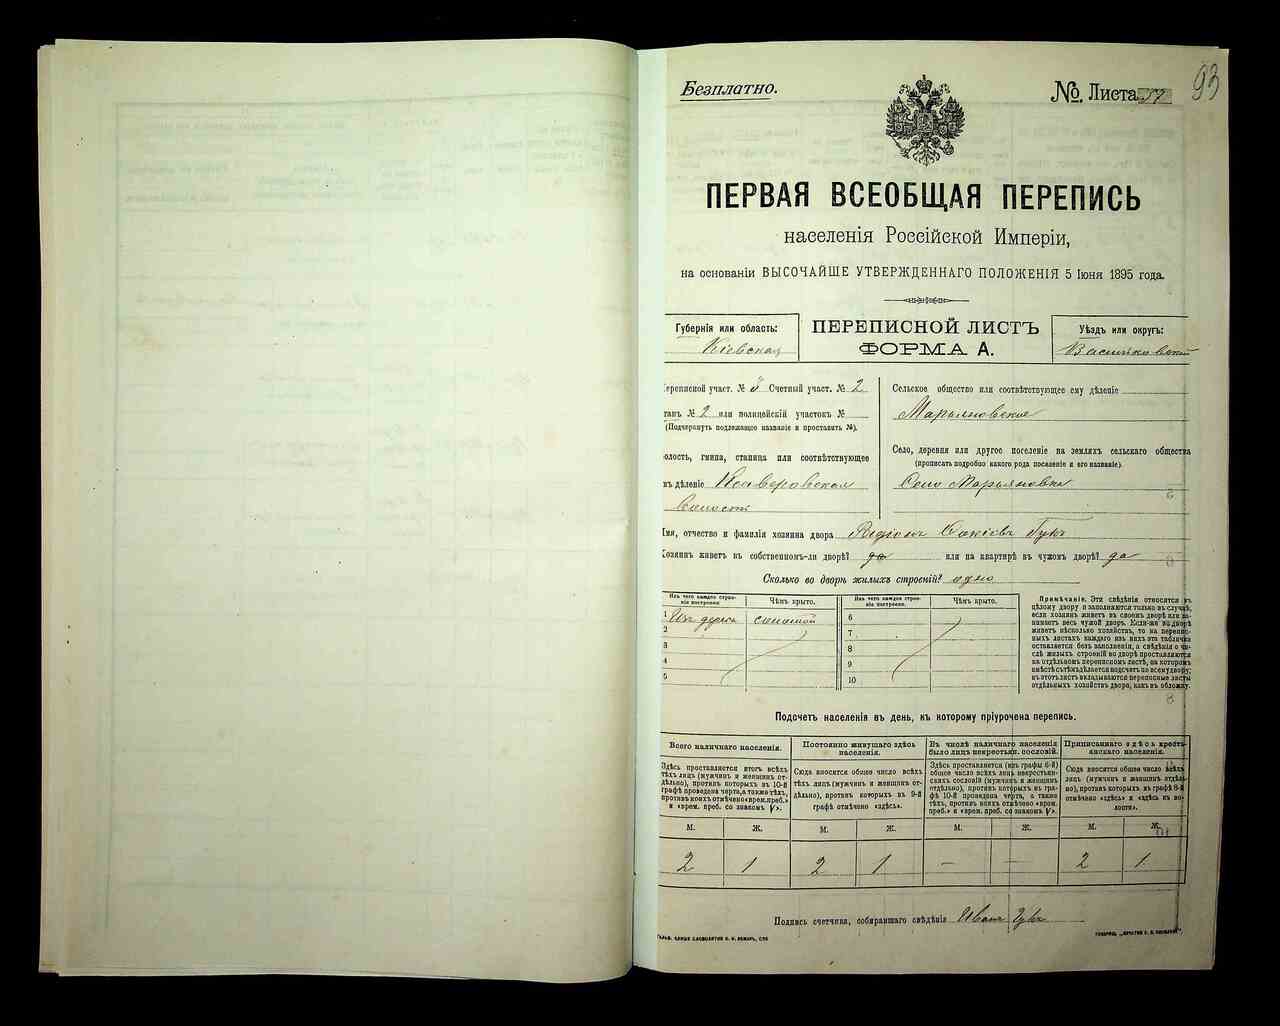 Безплатно.
№ Листа 57
93
ПЕРВАЯ ВСЕОБЩАЯ ПЕРЕПИСЬ
населенія Россійской Имперіи,
на основаніи ВЫСОЧАЙШЕ УТВЕРЖДЕННАГО ПОЛОЖЕНІЯ 5 Іюня 1895 года.
Губернія или область:
Кіевская
ПЕРЕПИСНОЙ ЛИСТЪ
ФОРМА А.
Уѣздъ или округъ:
Васильковскій
Переписной участ. № 3 Счетный участ. № 2
Станъ № 2 или полицейскій участокъ №
(Подчеркнуть подлежащее названіе и проставить №).
Волость, гмина, станица или соотвѣтствующее
имъ дѣленіе Ксаверовская
волость
Сельское общество или соотвѣтствующее ему дѣленіе
Марьяновское
Село, деревня или другое поселеніе на земляхъ сельскаго общества
(прописать подробно какого рода поселеніе и его названіе).
Село Марьяновка
Имя, отчество и фамилія хозяина двора Родіонъ Гукъ
Хозяинъ живетъ въ собственномъ-ли дворѣ? да или на квартирѣ въ чужомъ дворѣ? да
Сколько во дворѣ жилыхъ строеній? одно
Изъ чего каждое строеніе построено.
Чѣмъ крыто.
Изъ чего каждое строеніе построено.
Чѣмъ крыто.
1 Изъ дерева соломой
2
3
4
5
6
7
8
9
10
Примѣчаніе. Эти свѣдѣнія относятся къ
цѣлому двору и заполняются только въ случаѣ,
если хозяинъ живетъ въ своемъ дворѣ или занимаетъ
весь чужой дворъ. Если-же въ дворѣ
живетъ нѣсколько хозяйствъ, то на переписныхъ
листахъ каждаго изъ нихъ эта табличка
оставляется безъ заполненія, а свѣдѣнія о числѣ
жилыхъ строеній во дворѣ проставляются
на отдѣльномъ переписномъ листѣ, на которомъ
вмѣстѣ съ тѣмъ дѣлается подсчетъ по всему двору;
въ этотъ листъ вкладываются переписные листы
отдѣльныхъ хозяйствъ двора, какъ въ обложку.
Подсчетъ населенія въ день, къ которому пріурочена перепись.
Всего наличнаго населенія.
Здѣсь проставляется итогъ всѣхъ
тѣхъ лицъ (мужчинъ и женщинъ отдѣльно),
противъ которыхъ въ 10-й
графѣ проведена черта, а также тѣхъ,
противъ коихъ отмѣчено «врем. преб.»
и «врем. преб. со знакомъ V».
Постоянно живущаго здѣсь
населенія.
Сюда вносится общее число всѣхъ
тѣхъ лицъ (мужчинъ и женщинъ отдѣльно),
противъ которыхъ въ 9-й
графѣ отмѣчено «здѣсь».
Въ числѣ наличнаго населенія
было лицъ некрестьян. сословій.
Здѣсь проставляется (изъ графы 6-й)
общее число всѣхъ лицъ некрестьянскихъ
сословій (мужчинъ и женщинъ
отдѣльно), противъ которыхъ въ графѣ
10-й проведена черта, а также
тѣхъ, противъ коихъ отмѣчено «врем.
преб.» и «врем. преб. со знакомъ V».
Приписаннаго здѣсь крестьянскаго
населенія.
Сюда вносится общее число всѣхъ
лицъ (мужчинъ и женщинъ отдѣльно),
противъ которыхъ въ графѣ 8-й
отмѣчено «здѣсь» и «здѣсь въ волости».
М. Ж. М. Ж. М. Ж. М. Ж.
2 1 2 1 — — 2 1
Подпись счетчика, собиравшаго свѣдѣнія Иванъ Гукъ